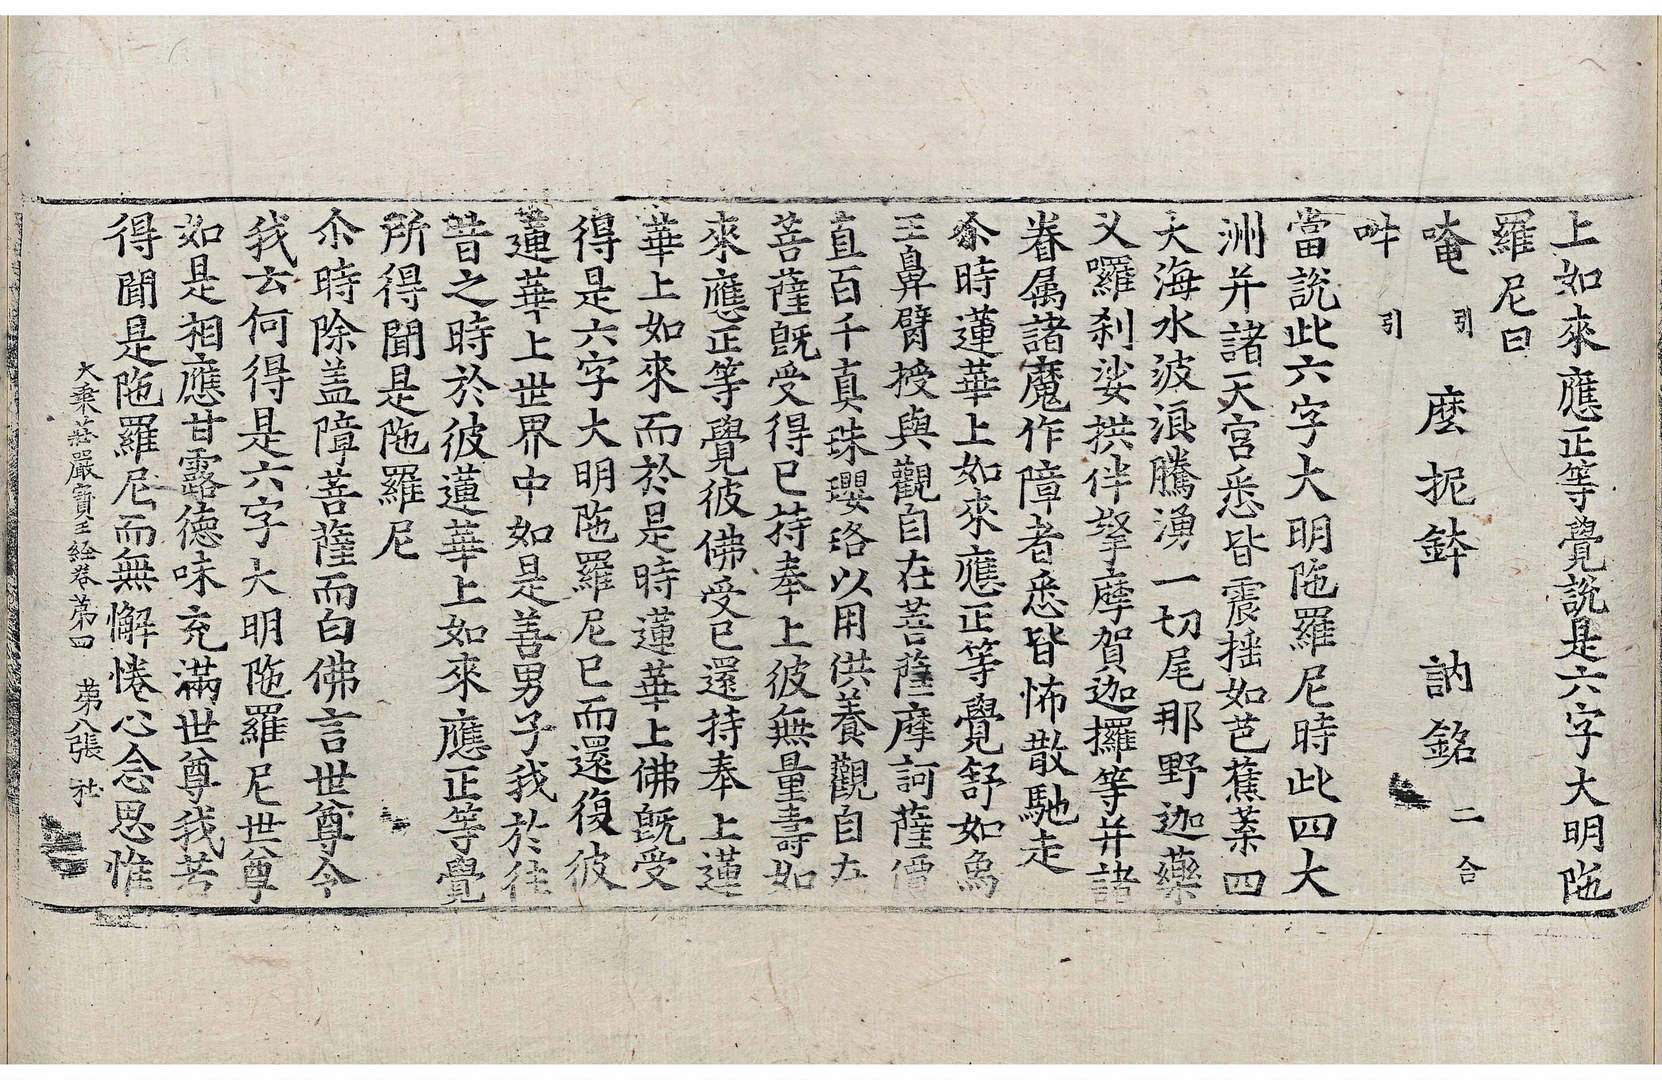 上如來應正等覺說是六字大明陁
羅尼曰
唵引 麼抳鉢 訥銘二合
吽引
當說此六字大明陁羅尼時此四大
洲并諸天宮悉皆震揺如芭蕉葉四
大海水波浪騰湧一切尾那野迦藥
叉囉刹娑拱伴拏摩賀迦攞等并諸
眷属諸魔作障者悉皆怖散馳走
尒時蓮華上如來應正等覺舒如象
王鼻臂授與觀自在菩薩摩訶薩價
直百千真珠瓔珞以用供養觀自在
菩薩旣受得已持奉上彼無量壽如
來應正等覺彼佛受已還持奉上蓮
華上如來而於是時蓮華上佛旣受
得是六字大明陁羅尼已而還復彼
蓮華上世界中如是善男子我於往
昔之時於彼蓮華上如來應正等覺
所得聞是陁羅尼
尒時除盖障菩薩而白佛言世尊令
我云何得是六字大明陁羅尼世尊
如是相應甘露德味充滿世尊我若
得聞是陁羅尼而無懈惓心念思惟
大乗莊嚴寶王経卷苐四 苐八張 社